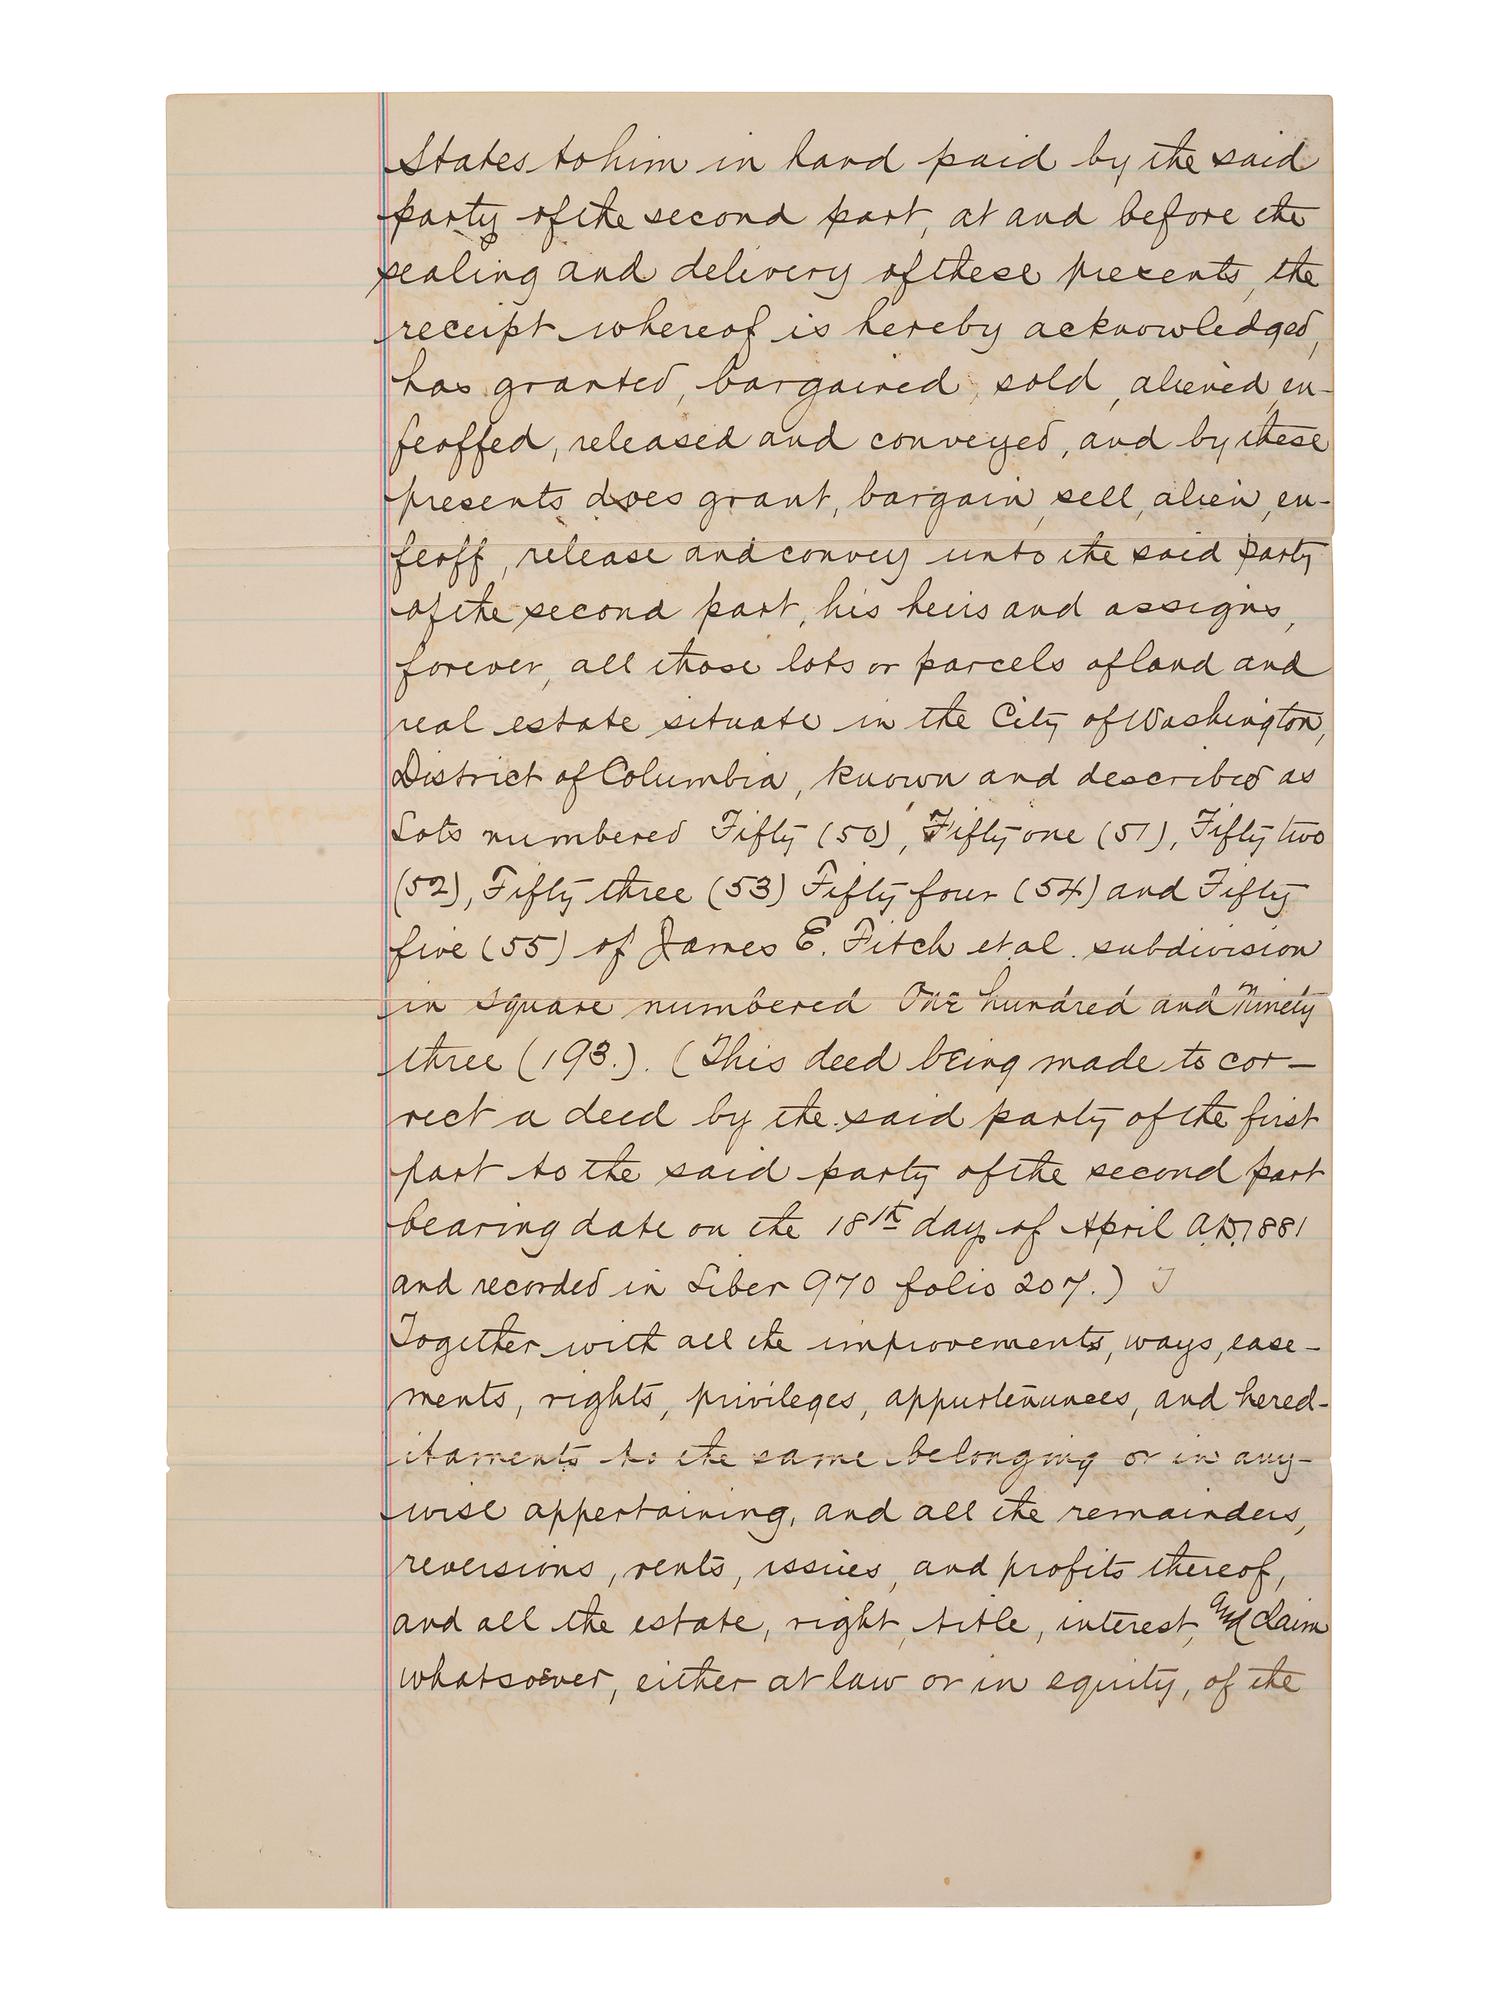 States to him in hand paid by the said
party of the second part, at and before the
sealing and delivery of these presents, the
receipt whereof is hereby acknowledged,
has granted, bargained, sold, aliened, en-
feoffed, released and conveyed, and by these
presents does grant, bargain, sell, alien, en-
feoff, release and convey unto the said party
of the second part, his heirs and assigns,
forever, all those lots or parcels of land and
real estate situate in the City of Washington,
District of Columbia, known and described as
Lots numbered Fifty (50), Fifty one (51), Fifty two
(52), Fifty three (53) Fifty four (54) and Fifty
five (55) of James E. Fitch et al. subdivision
in square numbered One hundred and Ninety
three (193.). (This deed being made to cor-
rect a deed by the said party of the first
part to the said party of the second part
bearing date on the 18th day of April A.D. 1881
and recorded in Liber 970 folio 207.) T
Together with all the improvements, ways, ease-
ments, rights, privileges, appurtenances, and hered-
itaments to the same belonging or in any-
wise appertaining, and all the remainders,
reversions, rents, issues, and profits thereof,
and all the estate, right, title, interest, and claim
whatsoever, either at law or in equity, of the